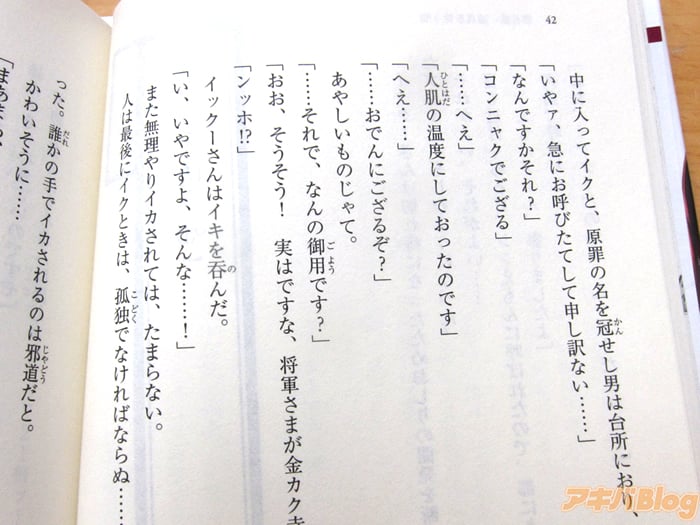 42
中に入ってイクと、原罪の名を冠せし男は台所におり、
「いやァ、急にお呼びたてして申し訳ない……」
「なんですかそれ？」
「コンニャクでござる」
「……へえ」
「人肌の温度にしておったのです」
「へえ……」
「……おでんにござるぞ？」
あやしいものじゃて。
「……それで、なんの御用です？」
「おお、そうそう！　実はですな、将軍さまが金カク寺
「ンッホ!?」
イックーさんはイキを呑んだ。
「い、いやですよ、そんな……！」
また無理やりイカされては、たまらない。
人は最後にイクときは、孤独でなければならぬ……
った。誰かの手でイカされるのは邪道だと。
かわいそうに……
「まあまあ
アキバBlog